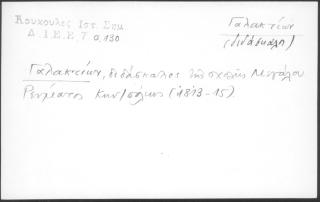 Κουκουλές Ιστ. Σημ.
Δ.Ι.Ε.Ε. 7 σ, 130
Γαλακτίων
(διδάσκαλος)
Γαλακτίων, διδάσκαλος της σχολής Μεγάλου
Ρεύματος Κων/πόλεως (1813-15).